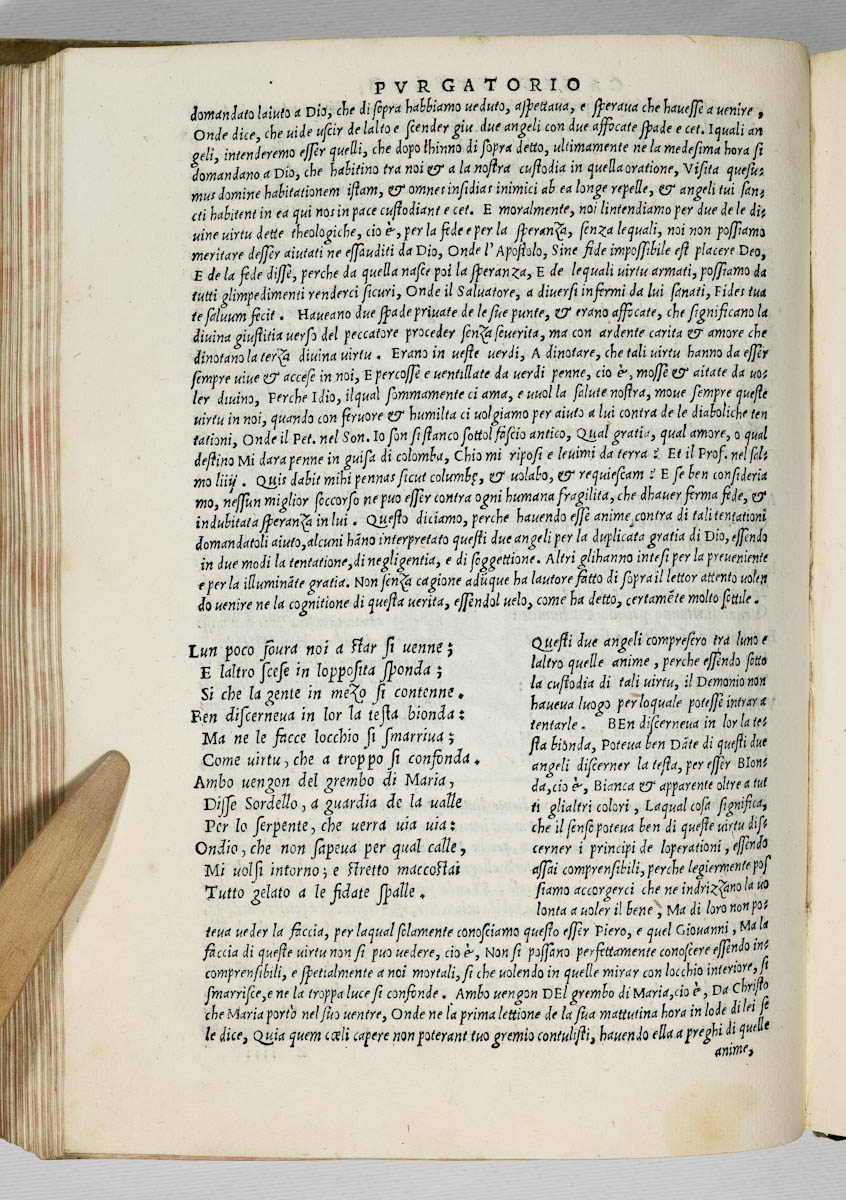 PVRGATORIO
domandato laiuto a Dio, che di sopra habbiamo ueduto, aspettaua, e speraua che hauesse a uenire,
Onde dice, che uide uscir de lalto e scender giu due angeli con due affocate spade e cet. Iquali an
geli, intenderemo esser quelli, che dopo lhinno di sopra detto, ultimamente ne la medesima hora si
domandano a Dio, che habitino tra noi & a la nostra custodia in quella oratione, Visita quesu-
mus domine habitationem istam, & omnes insidias inimici ab ea longe repelle, & angeli tui san-
cti habitent in ea qui nos in pace custodiant e cet. E moralmente, noi lintendiamo per due de le di-
uine uirtu dette theologiche, cio è, per la fede e per la speranza, senza lequali, noi non possiamo
meritare desser aiutati ne essauditi da Dio, Onde l'Apostolo, Sine fide impossibile est placere Deo,
E de la fede disse, perche da quella nasce poi la speranza, E de lequali uirtu armati, possiamo da
tutti glimpedimenti renderci sicuri, Onde il Saluatore, a diuersi infermi da lui sanati, Fides tua
te saluum fecit. Haueano due spade priuate de le sue punte, & erano affocate, che significano la
diuina giustitia uerso del peccatore proceder senza seuerita, ma con ardente carita & amore che
dinotano la terza diuina uirtu. Erano in ueste uerdi, A dinotare, che tali uirtu hanno da esser
sempre uiue & accese in noi, E percosse e uentillate da uerdi penne, cio è, mosse & aitate da uo-
ler diuino, Perche Idio, ilqual sommamente ci ama, e uuol la salute nostra, moue sempre queste
uirtu in noi, quando con feruore & humilta ci uolgiamo per aiuto a lui contra de le diaboliche ten
tationi, Onde il Pet. nel Son. Io son si stanco sottol fascio antico, Qual gratia, qual amore, o qual
destino Mi dara penne in guisa di colomba, Chio mi riposi e leuimi da terra? Et il Prof. nel sal-
mo liiij. Quis dabit mihi pennas sicut columbę, & uolabo, & requiescam? E se ben consideria
mo, nessun miglior soccorso ne puo esser contra ogni humana fragilita, che dhauer ferma fede, &
indubitata speranza in lui. Questo diciamo, perche hauendo esse anime contra di tali tentationi
domandatoli aiuto, alcuni hãno interpretato questi due angeli per la duplicata gratia di Dio, essendo
in due modi la tentatione, di negligentia, e di soggettione. Altri glihanno intesi per la preueniente
e per la illuminãte gratia. Non senza cagione adũque ha lautore fatto di sopra il lettor attento uolen
do uenire ne la cognitione di questa uerita, essendol uelo, come ha detto, certamẽte molto sottile.
Lun poco soura noi a star si uenne;
E laltro scese in lopposita sponda;
Si che la gente in mezo si contenne.
Ben discerneua in lor la testa bionda:
Ma ne le facce locchio si smarriua;
Come uirtu, che a troppo si confonda.
Ambo uengon del grembo di Maria,
Disse Sordello, a guardia de la ualle
Per lo serpente, che uerra uia uia:
Ondio, che non sapeua per qual calle,
Mi uolsi intorno; e stretto maccostai
Tutto gelato a le fidate spalle.
Questi due angeli compresero tra luno e
laltro quelle anime, perche essendo sotto
la custodia di tali uirtu, il Demonio non
haueua luogo per loquale potesse intrar a
tentarle. BEn discerneua in lor la te-
sta bionda, Poteua ben Dãte di questi due
angeli discerner la testa, per esser BIon-
da, cio è, Bianca & apparente oltre a tut
ti glialtri colori, Laqual cosa significa,
che il senso poteua ben di queste uirtu dis-
cerner i principi de loperationi, essendo
assai comprensibili, perche legiermente pos
siamo accorgerci che ne indrizzano la uo
lonta a uoler il bene, Ma di loro non po-
teua ueder la faccia, per laqual solamente conosciamo questo esser Piero, e quel Giouanni, Ma la
faccia di queste uirtu non si puo uedere, cio è, Non si possano perfettamente conoscere essendo in-
comprensibili, e spetialmente a noi mortali, si che uolendo in quelle mirar con locchio interiore, si
smarrisce, e ne la troppa luce si confonde. Ambo uengon DEl grembo di Maria, cio è, Da Christo
che Maria portò nel suo uentre, Onde ne la prima lettione de la sua mattutina hora in lode di lei se
le dice, Quia quem cœli capere non poterant tuo gremio contulisti, hauendo ella a preghi di quelle
anime,